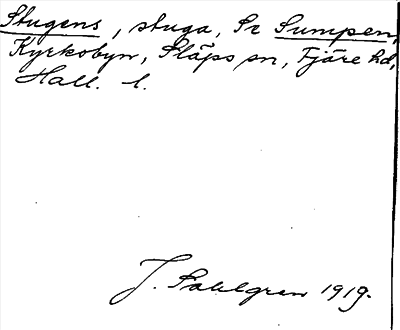 Stugens, stuga, Sr Sumpen,
Kyrkobyn, Släps sn, Fjäre hd,
Hall. l.
J. Sahlgren 1919.